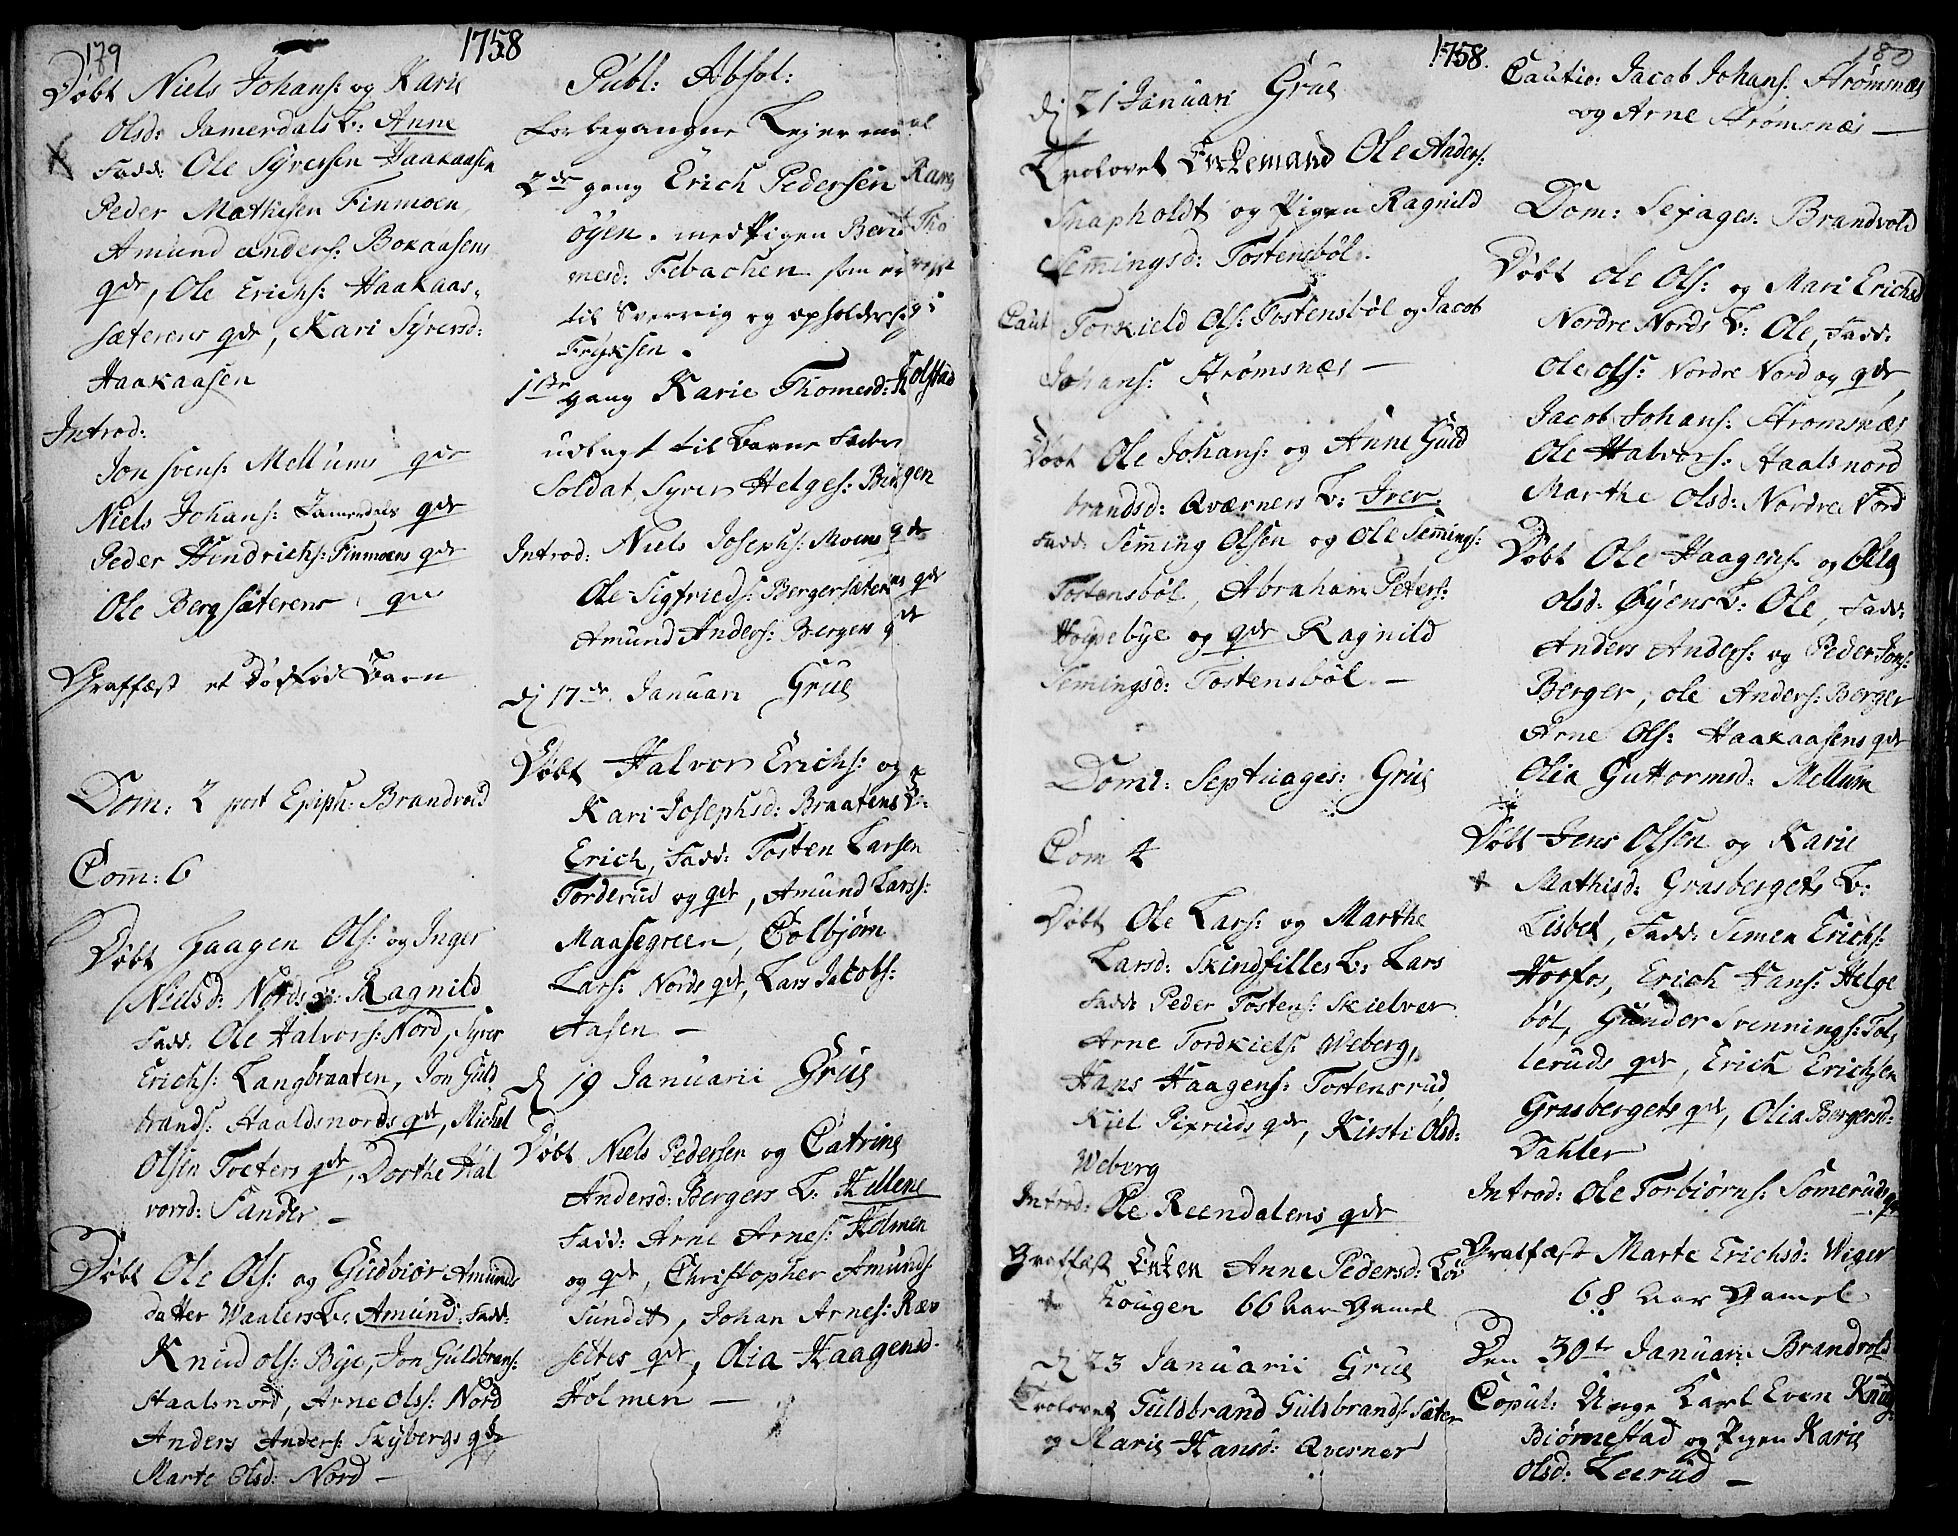 179
1758
Døbt Niels Johans: og Karie
Olsd: Jamerdals B: Anne
Fadd: Ole Syversen Haakaasen
Peder Mathisen Finmoen
Amund anders: Bokaasens
qvde, Ole Erichs: Haakaas-
sæterens qvde, Kari Syversd:
Haakaasen
Introd:
Jon svens: Mellums qde
Niels Johans: Jamerdals qde
Peder Hendrichs: Finmoens qde
Ole Bergsæterens qde
Graffæst et dødfød Barn
Dom: 2 post Epiph: Brandvold
Com: 6
Døbt Haagen Ols: og Inger
Nielsd: Nords B: Ragnild
Fadd: Ole Halvors: Nord, Syver
Erichs: Langbraaten, Jon Guld
brands: Haaldsnords qde, Michel
Olsen Toeters qde, Dorthe Hal
vorsd: Sander -
Døbt Ole Ols: og Gudbiør Amunds
datter Waalers B: Amund: Fadd:
Knud ols: Bye, Jon Guldbrans:
Haalsnord, Arne Ols: Nord
Anders Anders: Skybergs qde
Marte Olsd: Nord -
Publ: Absol:
for begangne Lejermaal
2de gang Erich Pedersen Rang
øyen. med Pigen Berit Tho
mesd: Febachen som er rejst
til Sverrig og opholder sig i
Fryksen.
1ste gang Karie Thomesd: Kolstad
udlagt til Barne Fader
Soldat Syver Helges: Bingen
Introd: Niels Josephs: Moens qde
Ole Sigfrieds: Bergersæterens qde
Amund Anders: Bergers qde
dj 17de Januari Grue
Døbt Halvor Erichs: og
Kari Josephsd: Braatens B:
Erich, Fadd: Tosten Larsen
Torderud og qde, Amund Lars:
Maasegreen, Colbjørn
Lars: Nords qde, Lars Jacobs:
Aasen -
dj 19 Januarii Grue
Døbt Niels Pedersen og Catrine
Andersd: Bergers B: Hellene
Fadd: Arne Arnes: Holmen
og qde, Christopher Amunds:
Sundet, Johan Arnes: Ræv
settes qde, Olia Haagensd:
Holmen -
1758.
180
dj 21 Januari Grue
Trolovet Enkemand Ole Anders:
Snapholdt og Pigen Ragnild
Semingsd: Tostensbøl.
Caut Torkield Ols: Tostensbøl og Jacob
Johans: Strømsnæs -
Døbt Ole Johans: og Anne Guld
brandsd: Qværners B: Iver.
Fadd: Semming Olsen og Ole Semings:
Tostensbøl, Abraham Peters:
Houpebye og qde Ragnild
Semingsd: Tostensbøl. -
Dom: Septuages: Grue
Com 4
Døbt Ole Lars: og Marthe
Larsd: Skindfilles B: Lars
Fadd: Peder Tostens: Skielver
Arne Tordkiels: Weberg,
Hans Haagens: Tostensrud,
Kiel Pipruds qde, Kirsti Olsd:
Weberg
Introd: Ole Reendalens qde
Graffæst Enken Anne Pedersd: Løv
hougen 66 Aar Gamel
dj 23 Januarii Grue
Trolovet Guldbrand Guldbrands: Sæter
og Marie Hansd: Qverner
Cautio: Jacob Johans: Strømsnæs
og Arne Strømsnæs -
Dom: Sexages: Brandvold
Døbt Ole Ols: og Mari Erichsd
Nordre Nords B: Ole, Fadd:
Ole ols: Nordre Nord og qde,
Jacob Johans: Strømsnæs
Ole Halvors: Haalsnord
Marthe Olsd: Nordre Nord
Døbt Ole Haagens: og Olia
Olsd: Øyens B: Ole, Fadd:
Anders Anders: og Peder Jons:
Berger, Ole Anders: Berger
Arne Ols: Haakaasens qde
Olia Guttormsd: Mellum
Døbt Jens Olsen og Karie
Mathisd: Grasbergets B:
Lisbet, Fadd: Simen Erichs:
Horfos, Erich Hans: Helge
bøl, Gunder Svennings: Tol,
leruds qde, Erich Erichsen
Grasbergets qde, Olia Bergersd:
Dahler
Introd: Ole Torbiørns: Someruds qde
Graffæst Marte Erichsd: Wiger
68 Aar Gamel
Den 30te Januarii Brandvold
Copul: Unge Karl Even Knuds:
Biørnestad og Pigen Karie
Olsd: Leerud -